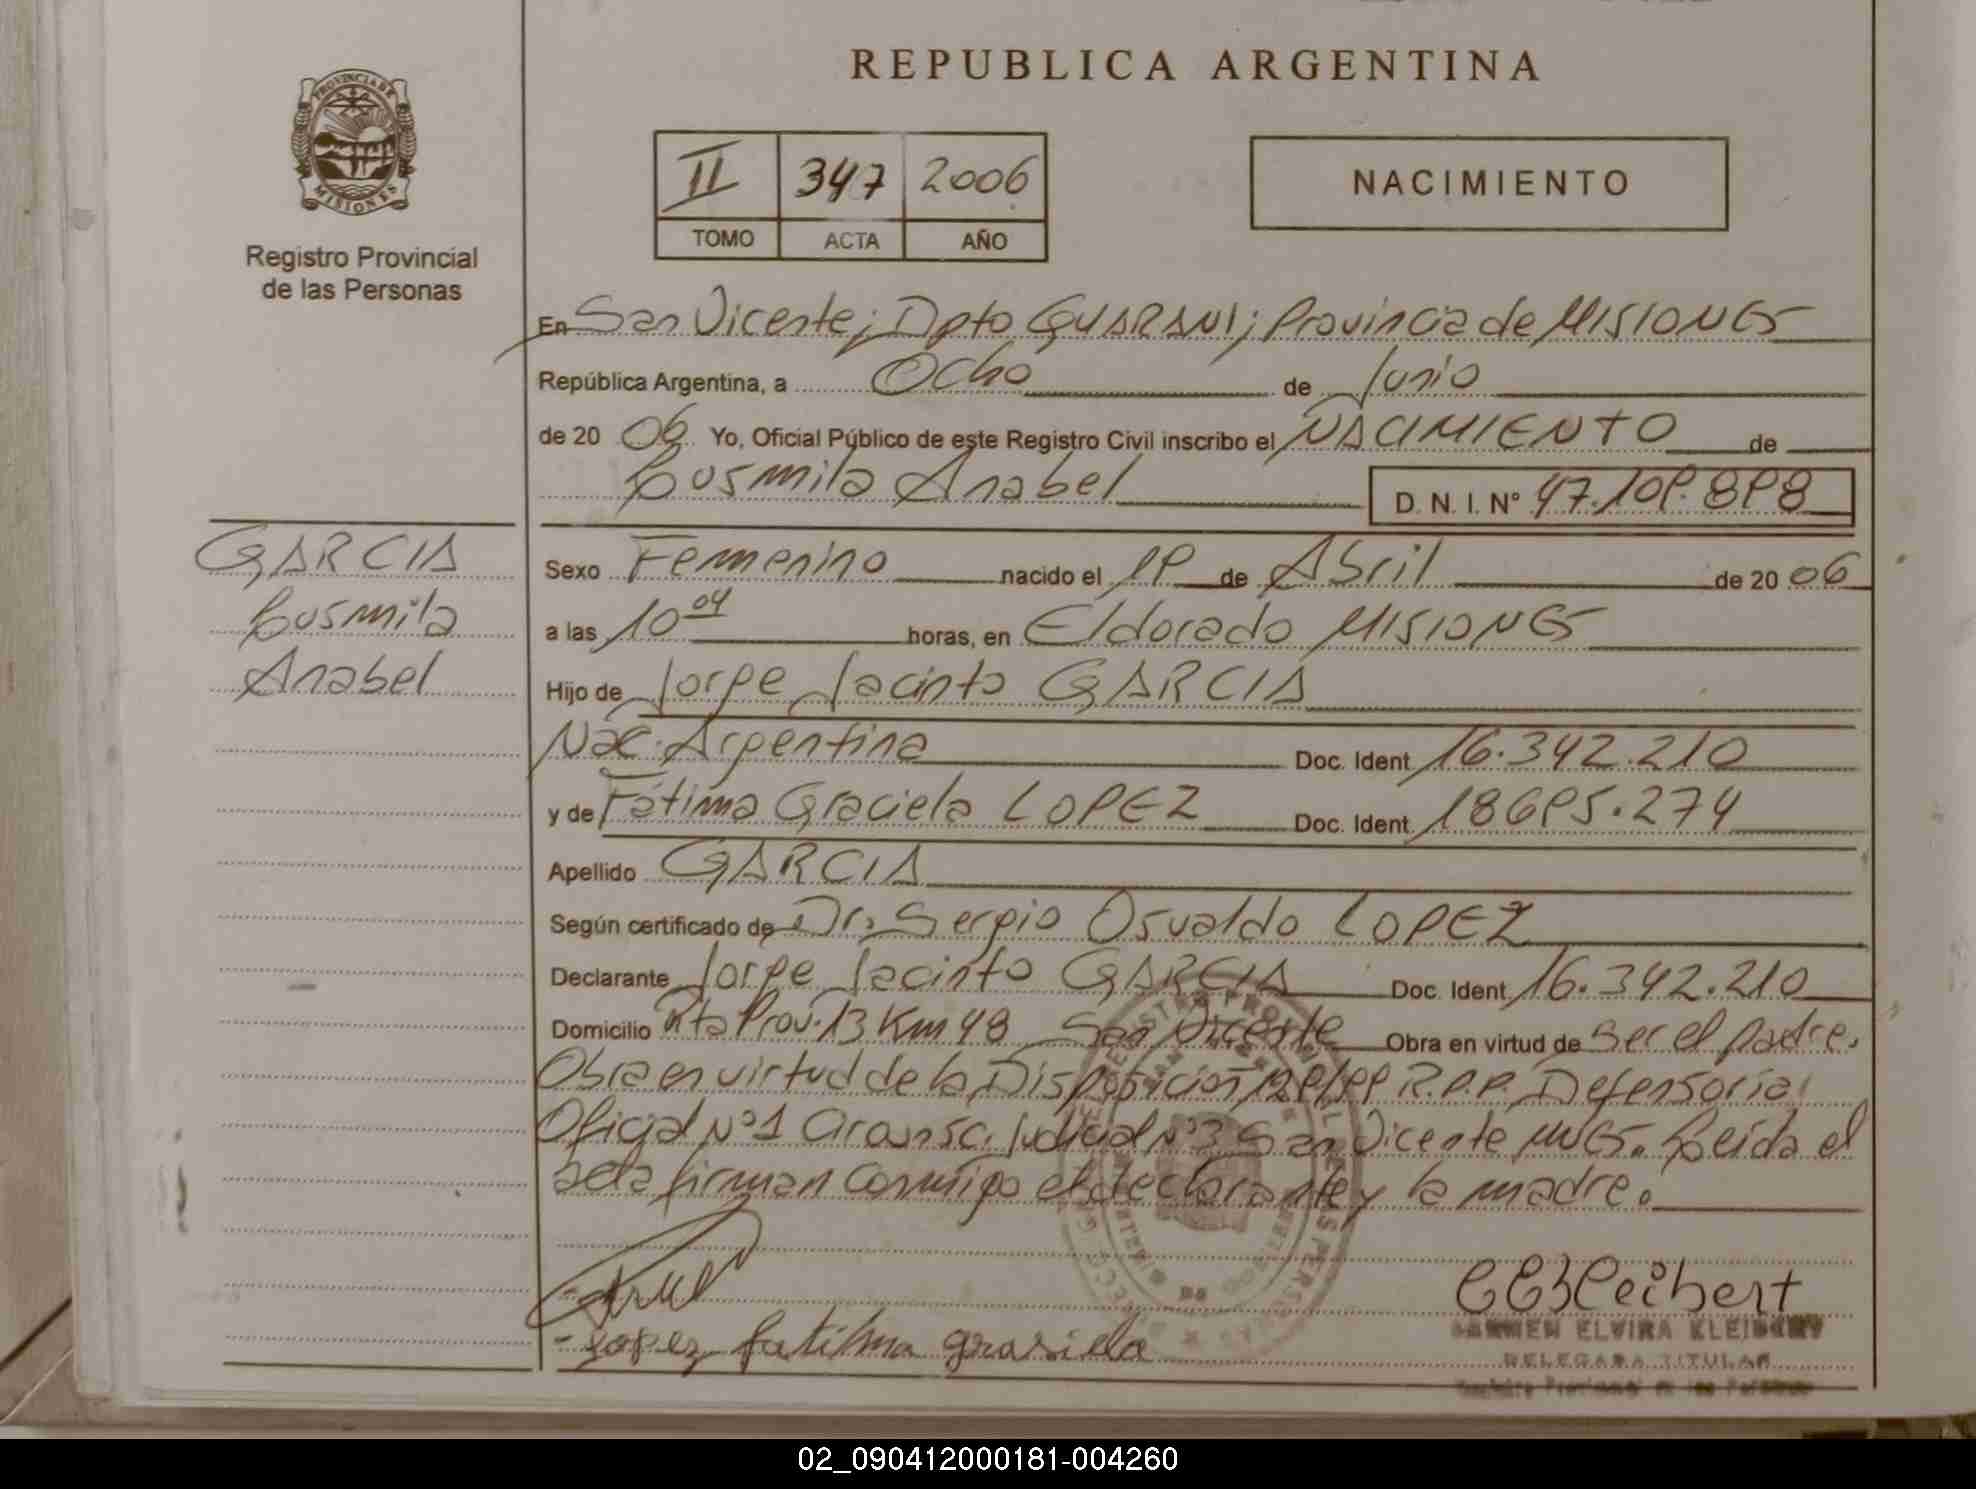 REPUBLICA ARGENTINA
PROVINCIA DE
MISIONES
Registro Provincial
de las Personas
II 347 2006
TOMO ACTA AÑO
NACIMIENTO
En San Vicente; Dpto GUARANI; Provincia de MISIONES
República Argentina, a Ocho de Junio
de 20 06 Yo, Oficial Público de este Registro Civil inscribo el NACIMIENTO de
Lusmila Anabel D. N. I. N° 47.109.898
GARCIA
Lusmila
Anabel
Sexo Femenino nacido el 19 de Abril de 20 06
a las 10 04 horas, en Eldorado MISIONES
Hijo de Jorge Jacinto GARCIA
Nac. Argentina Doc. Ident 16.342.210
y de Fátima Graciela LOPEZ Doc. Ident. 18695.274
Apellido GARCIA
Según certificado de Dr. Sergio Osvaldo LOPEZ
Declarante Jorge Jacinto GARCIA Doc. Ident. 16.342.210
Domicilio Rta Prov. 13 Km 48 San Vicente Obra en virtud de ser el padre.
Obra en virtud de la Disposición 129/99 R.P.P. Defensoría
Oficial N°1 Circunsc. Judicial N°3 San Vicente MNES. Leida el
acta firman conmigo el declarante y la madre.
- Lopez fatilma grasiela
CEKleibert
CARMEN ELVIRA KLEIBERT
DELEGADA TITULAR
Registro Provincial de las Personas
02_090412000181-004260